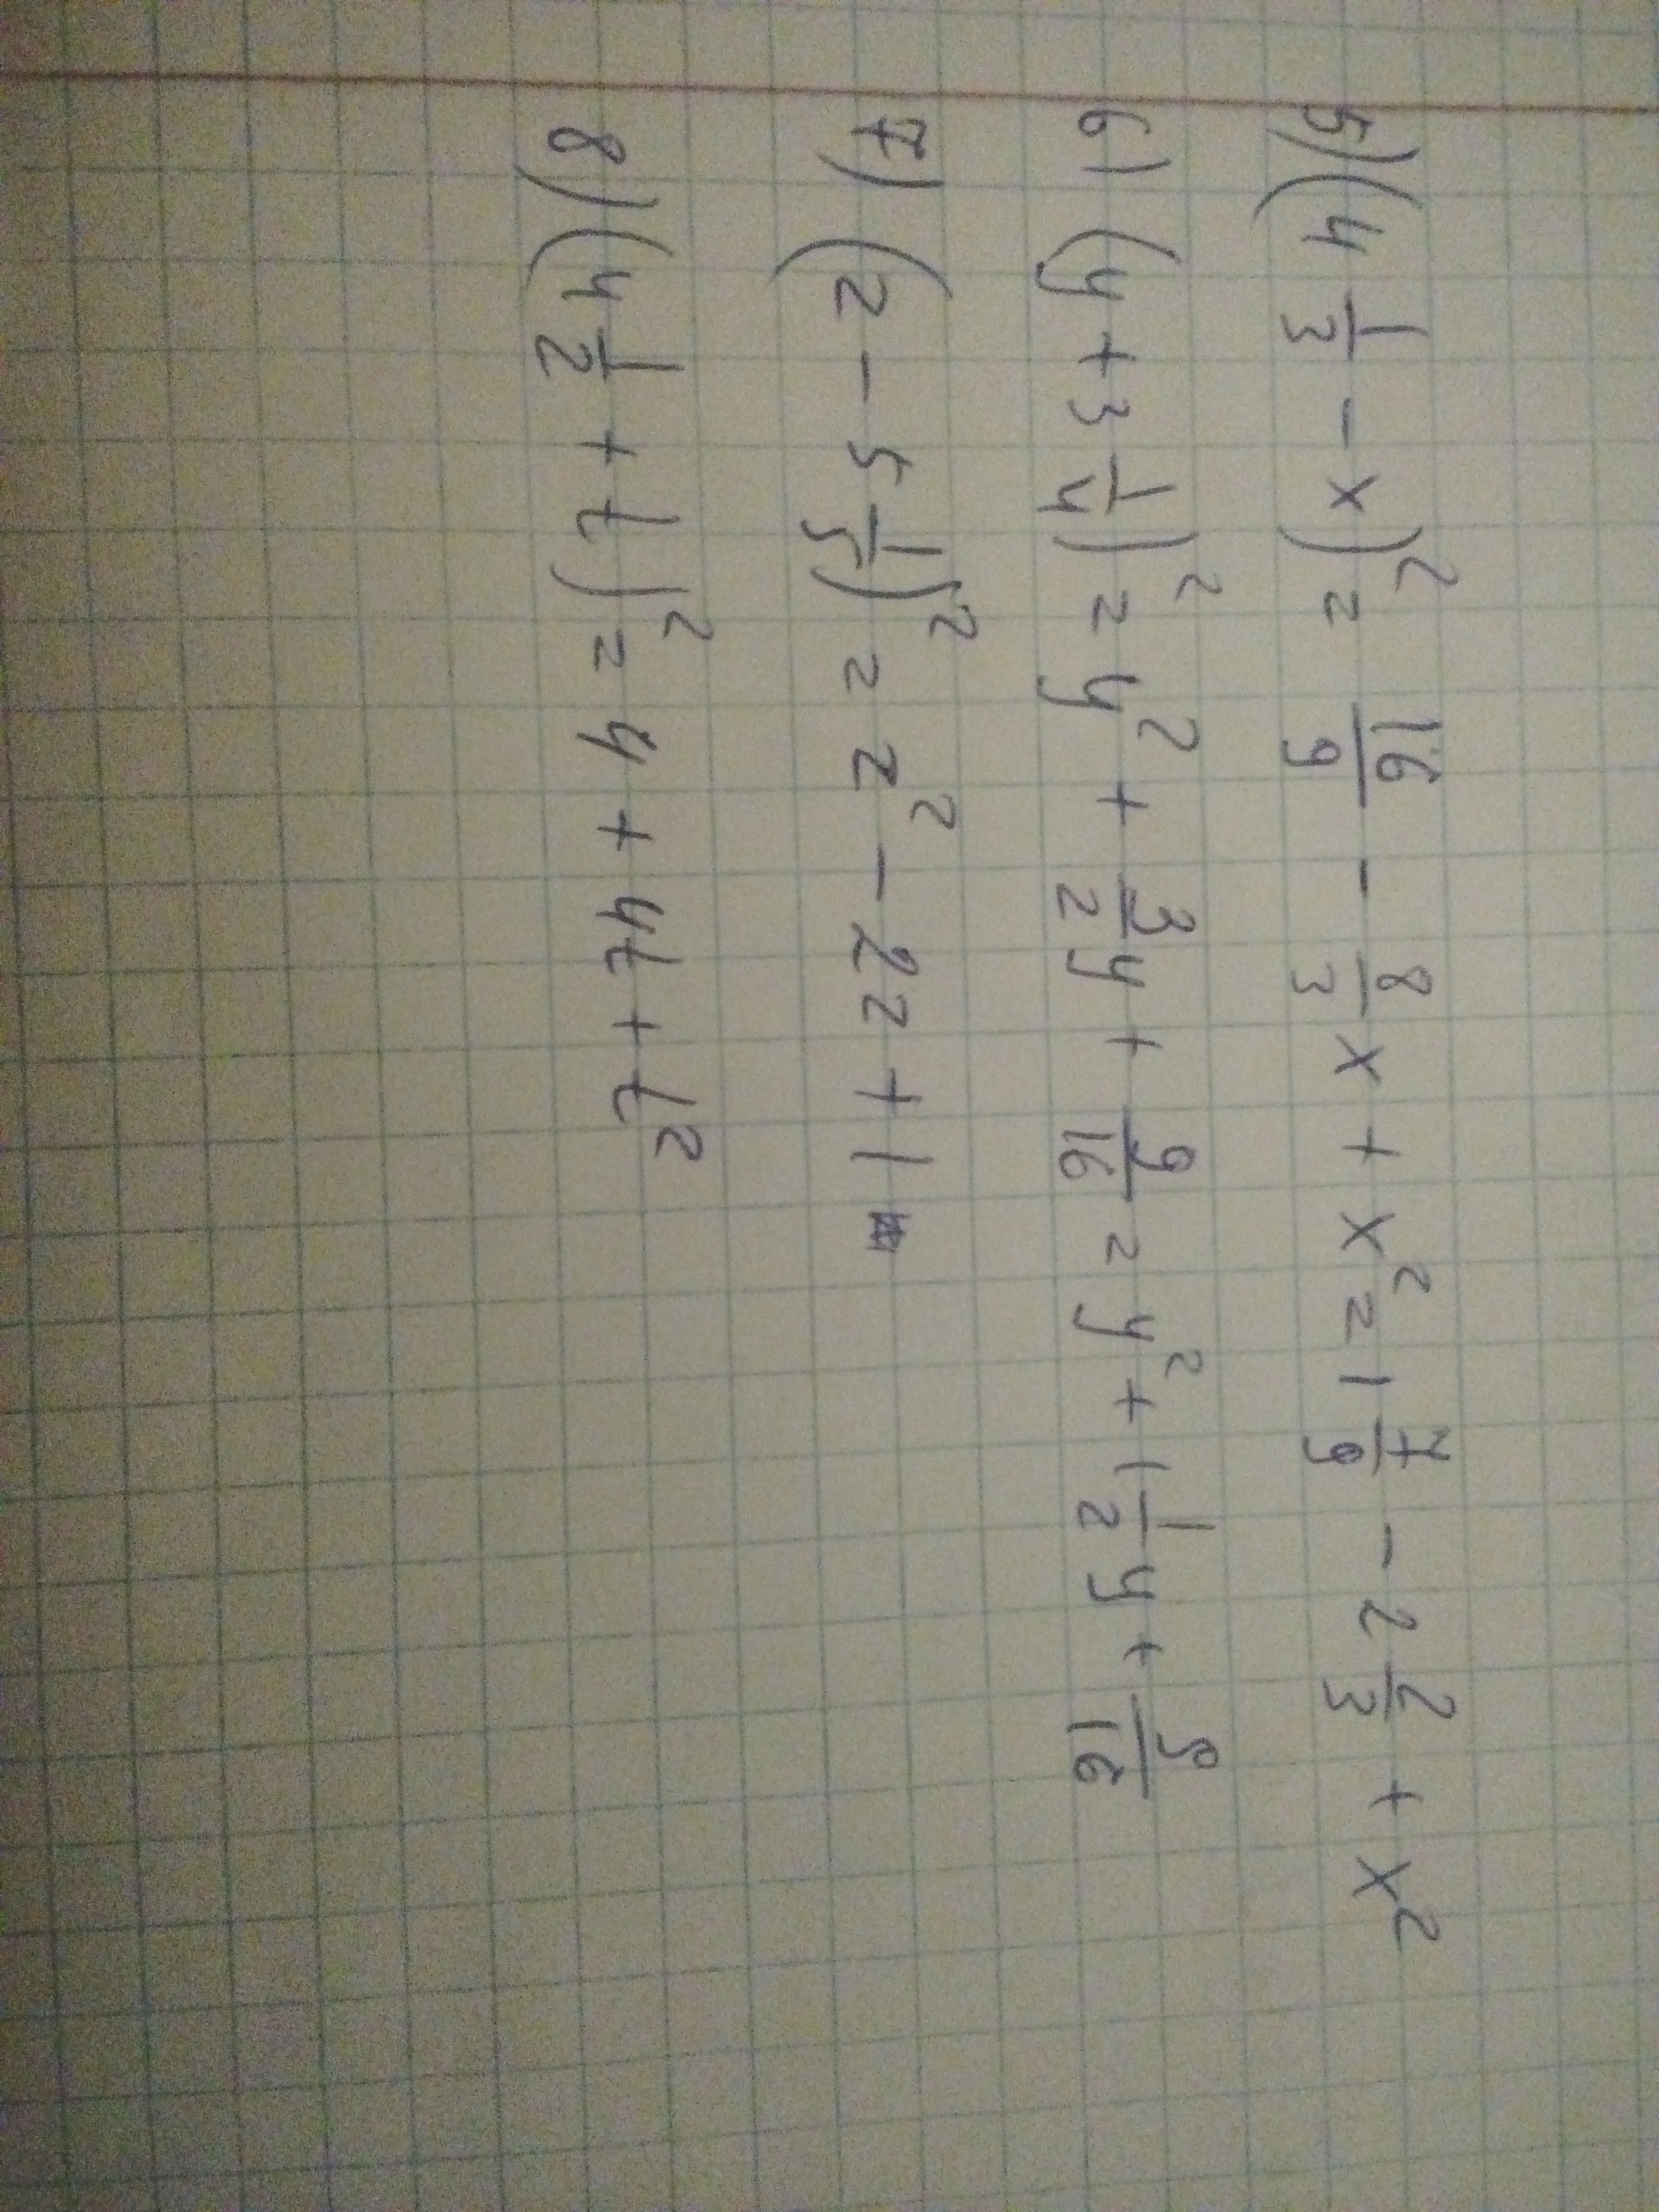 5) (4 1/3 - x)² = 16/9 - 8/3 x + x² = 1 7/9 - 2 2/3 + x²
6) (y + 3 1/4)² = y² + 3/2 y + 9/16 = y² + 1 1/2 y + 9/16
7) (z - 5 1/5)² = z² - 2z + 1
8) (4 1/2 + t)² = 4 + 4t + t²